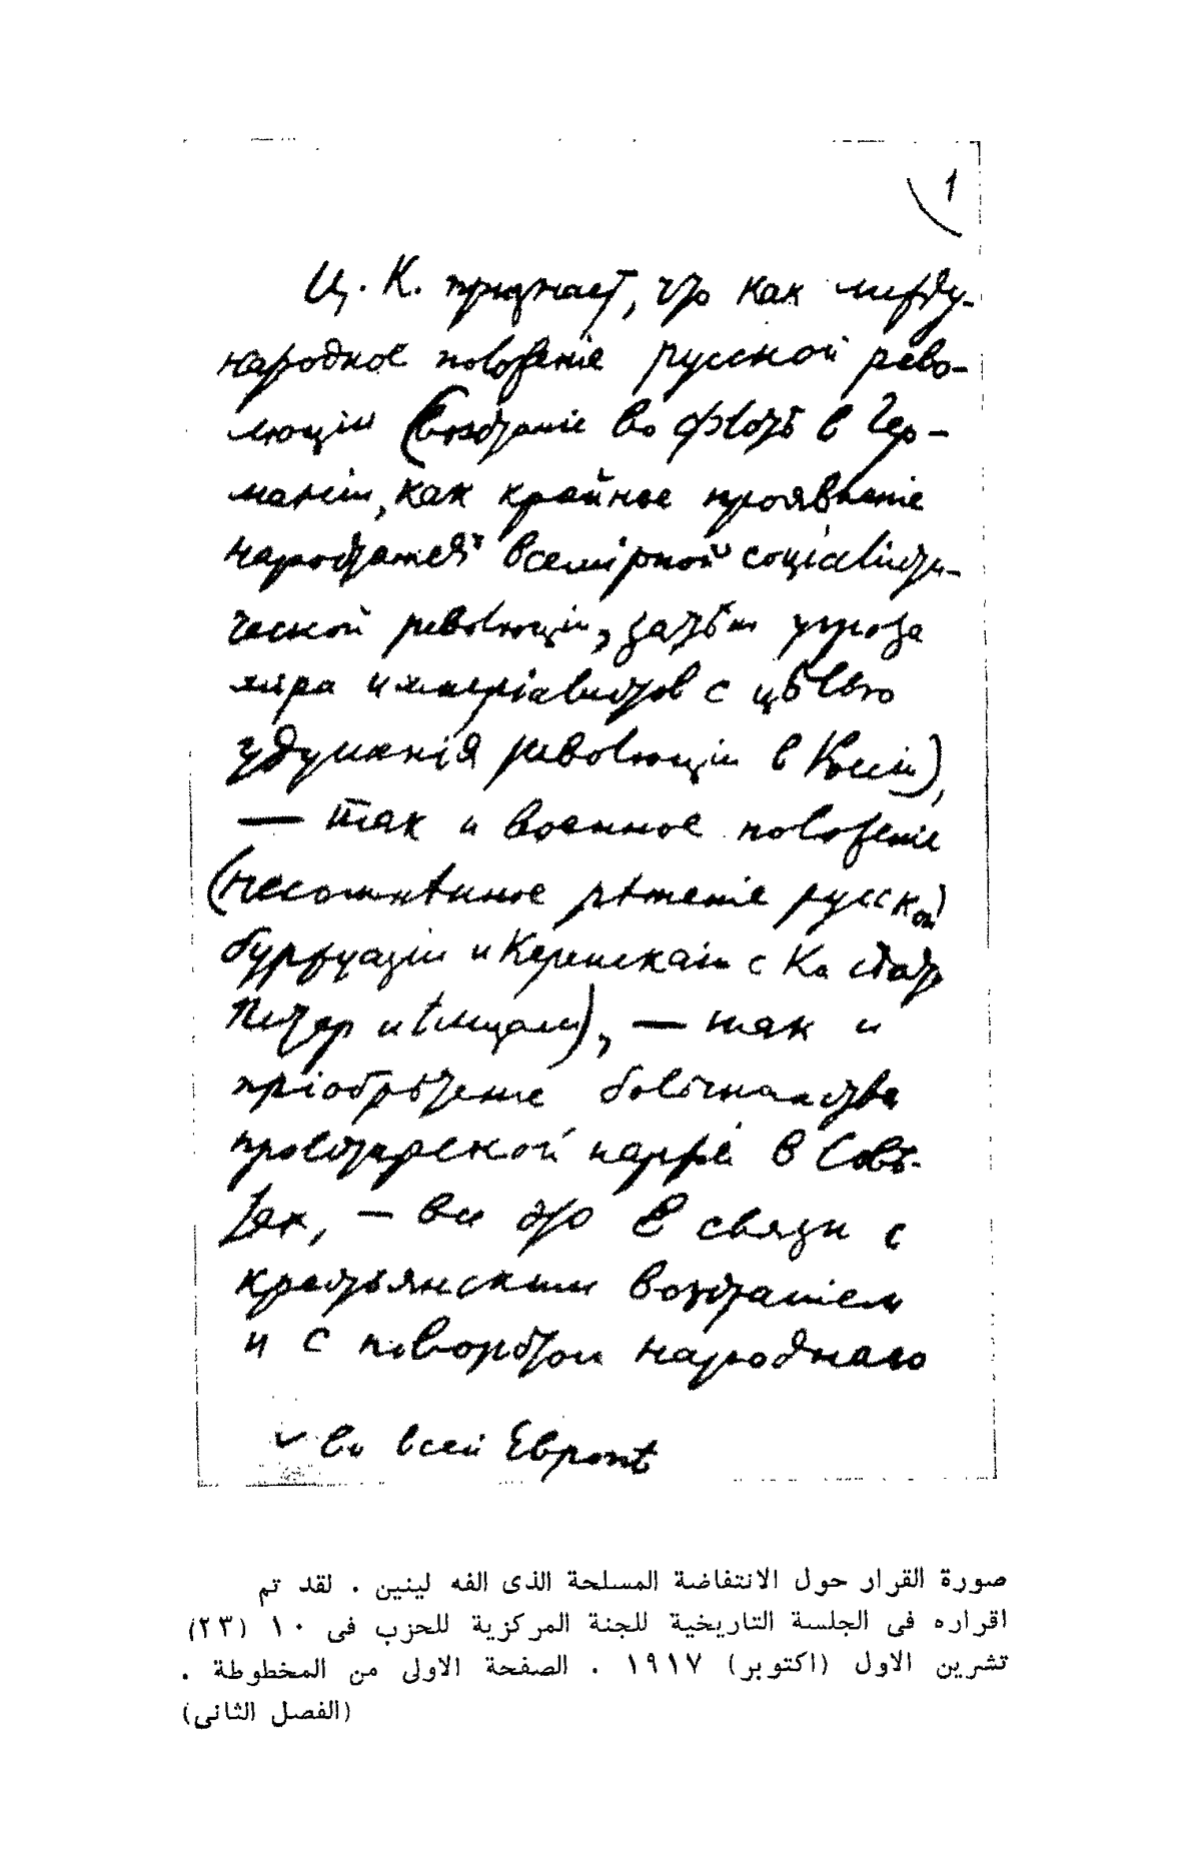 1
Ц. К. признает, что как между-
народное положение русской рево-
люціи (возстаніе во флотѣ в Гер-
маніи, как крайнее проявленіе
наростания всемірной соціалисти-
ческой революціи, затѣм угроза
мира имперіалистов с цѣлью
удушенія революціи в Россіи),
— так и военное положеніе
(несомнѣнное рѣшеніе русской
буржуазіи и Керенскаго с Ко сдать
Питер нѣмцам), — так и
пріобрѣтеніе большинства
пролетарской партіей в Совѣ-
тах, — все это в связи с
крестьянским возстаніем
и с поворотом народнаго
✓ во всей Европѣ
صورة القرار حول الانتفاضة المسلحة الذى الفه لينين . لقد تم
اقراره فى الجلسة التاريخية للجنة المركزية للحزب فى ١٠ (٢٣)
تشرين الاول (اكتوبر) ١٩١٧ . الصفحة الاولى من المخطوطة .
(الفصل الثانى)